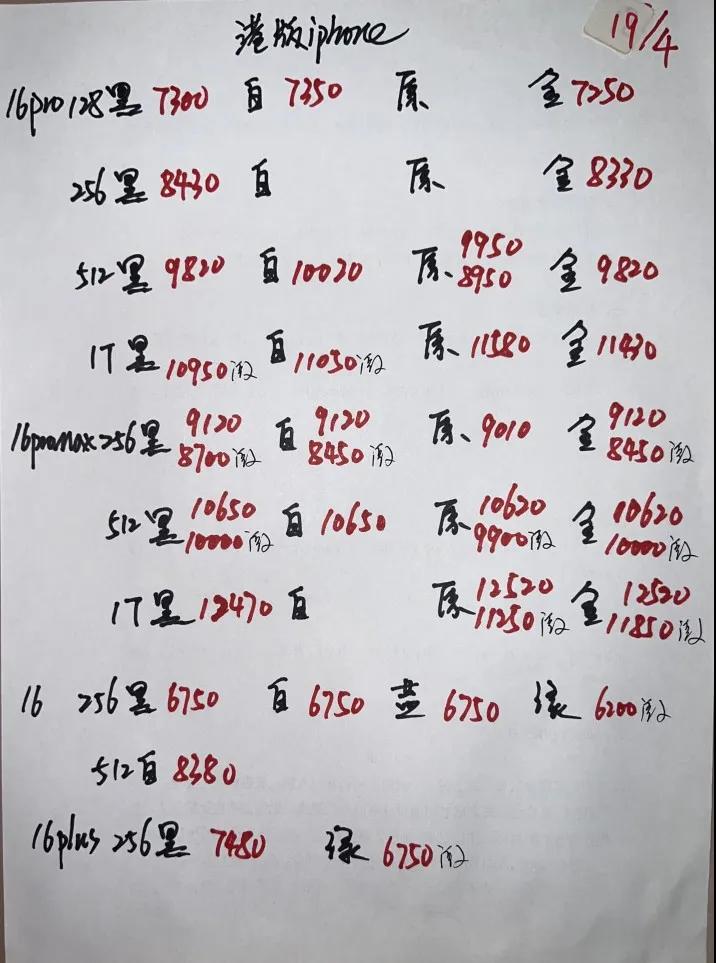 港版iphone 19/4
16pro 128黑 7300 白 7350 原、 金 7250
256黑 8430 白 原、 金 8330
9950
512黑 9820 白 10020 原、 8950 金 9820
1T 黑 10950激 白 11050激 原、 11580 金 11430
9120 9120 9120
16promax 256黑 8700激 白 8450激 原、 9010 金 8450激
10650 10620 10620
512黑 10000激 白 10650 原、 9900激 金 10000激
12520 12520
1T 黑 12470 白 原、 11250激 金 11850激
16 256黑 6750 白 6750 蓝 6750 绿 6200激
512白 8380
16plus 256黑 7480 绿 6750激